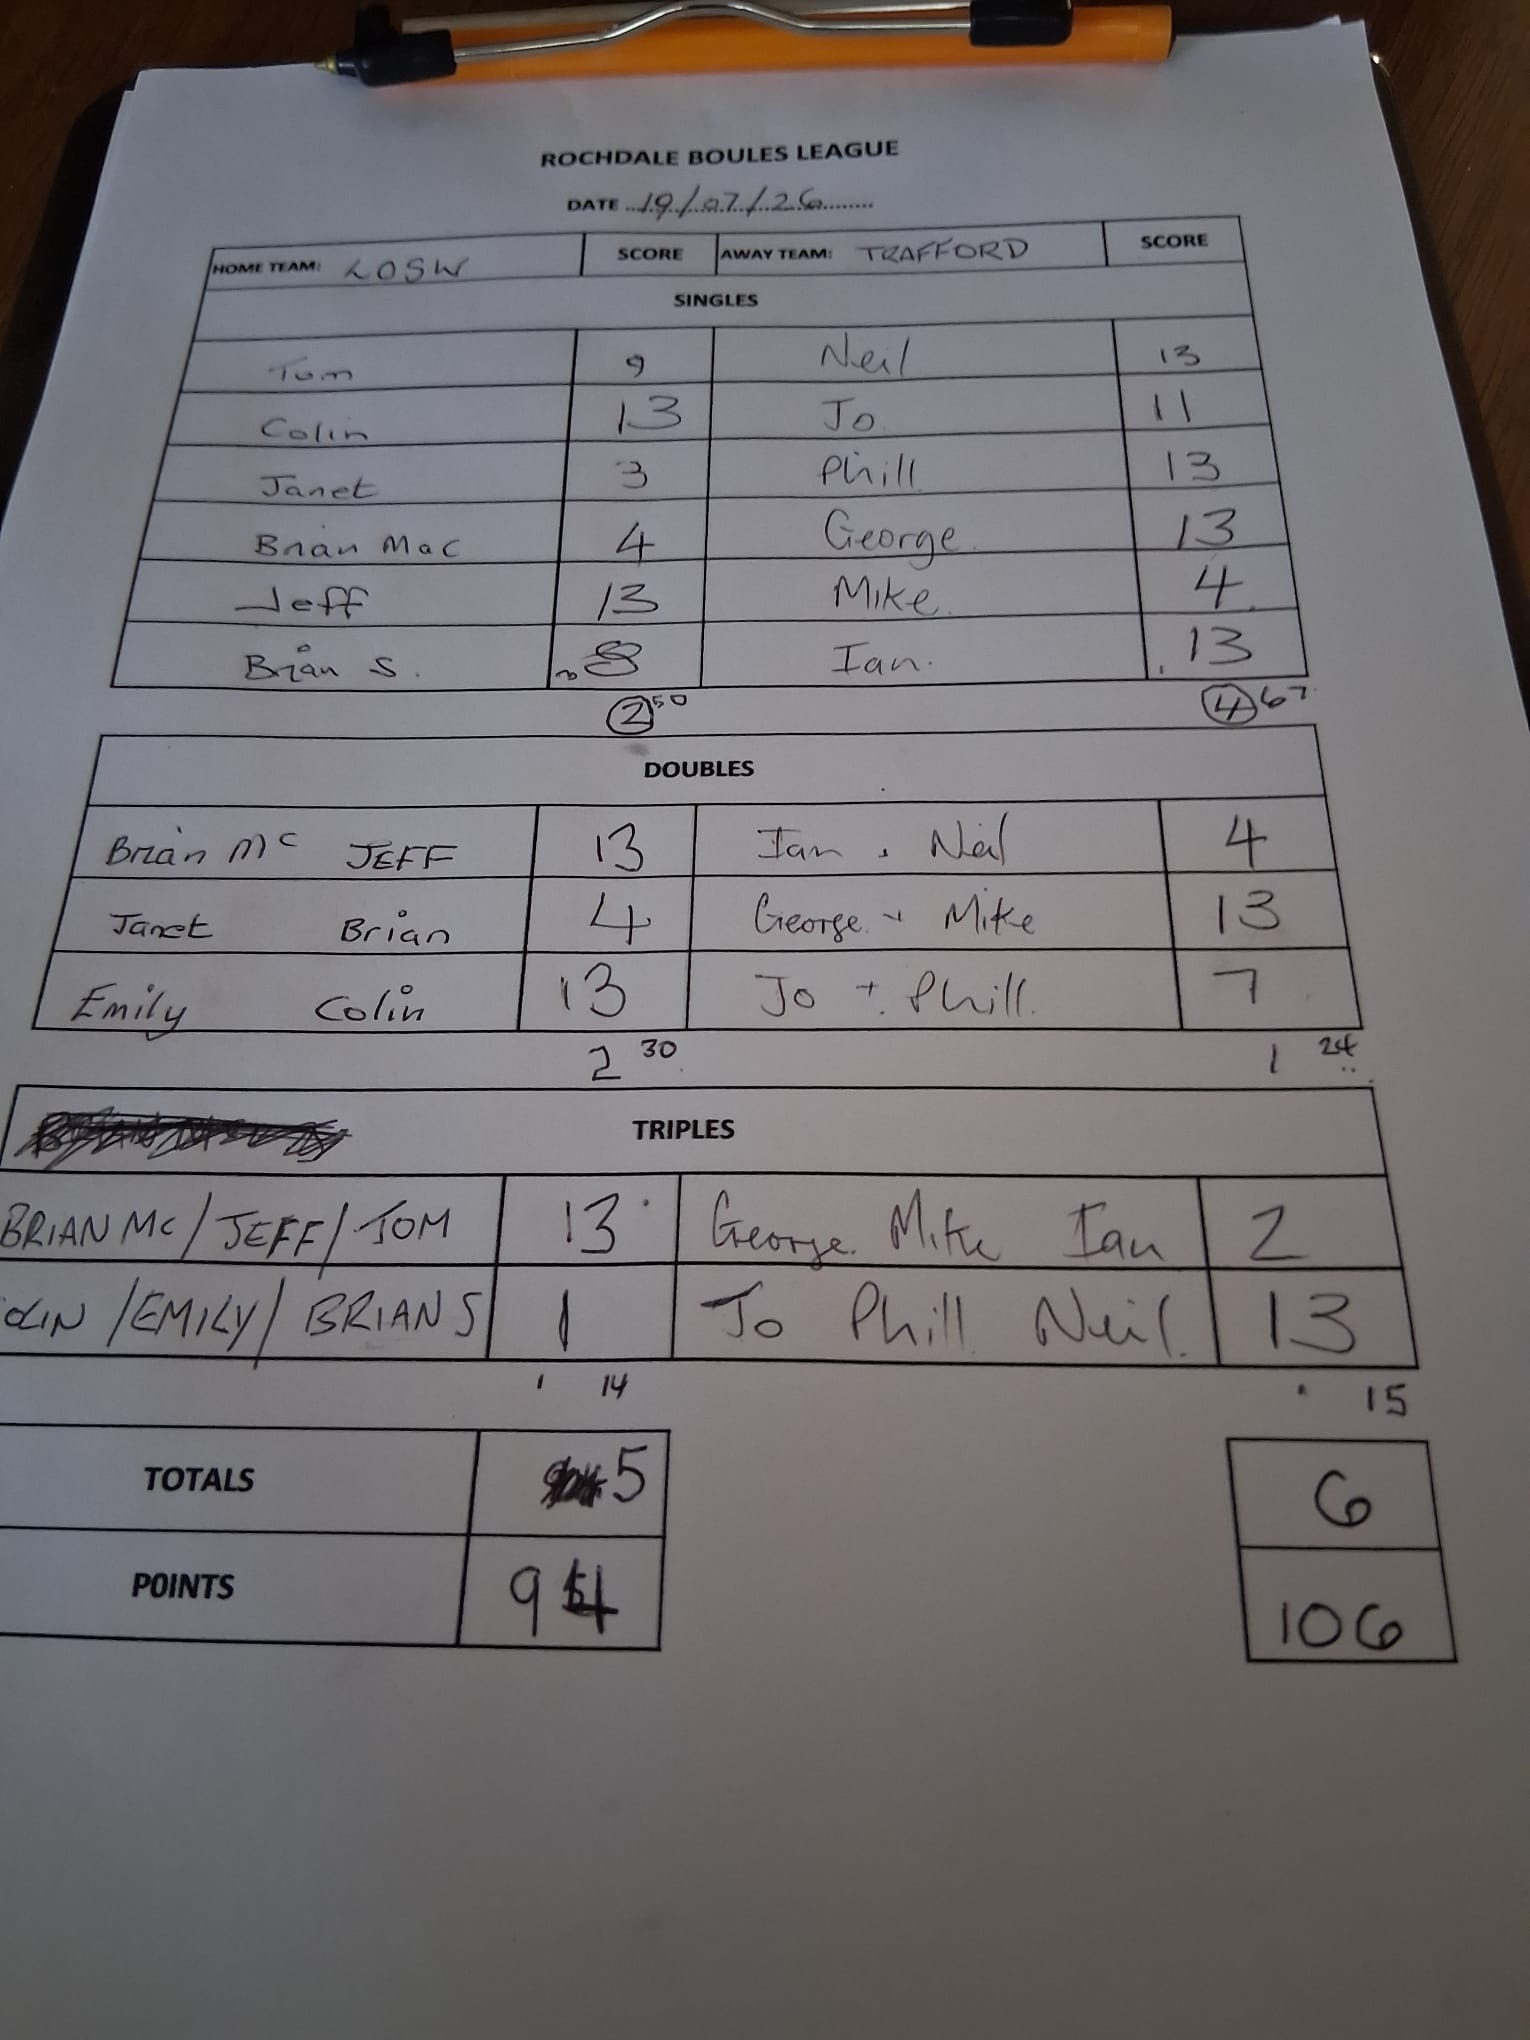 ROCHDALE BOULES LEAGUE
DATE ...19/07/26.........
HOME TEAM: LOSW SCORE AWAY TEAM: TRAFFORD SCORE
SINGLES
Tom 9 Neil 13
Colin 13 Jo. 11
Janet 3 Phill 13
Brian Mac 4 George. 13
Jeff 13 Mike. 4
Brian S. 8 Ian. 13
2 50 4 67
DOUBLES
Brian Mc JEFF 13 Ian + Neil 4
Janet Brian 4 George + Mike 13
Emily Colin 13 Jo + Phill. 7
2 30 1 24
TRIPLES
BRIAN MC / JEFF / TOM 13 George. Mike Ian 2
OLIN / EMILY / BRIAN S 1 Jo Phill Neil. 13
1 14 15
TOTALS 5 6
POINTS 94 106